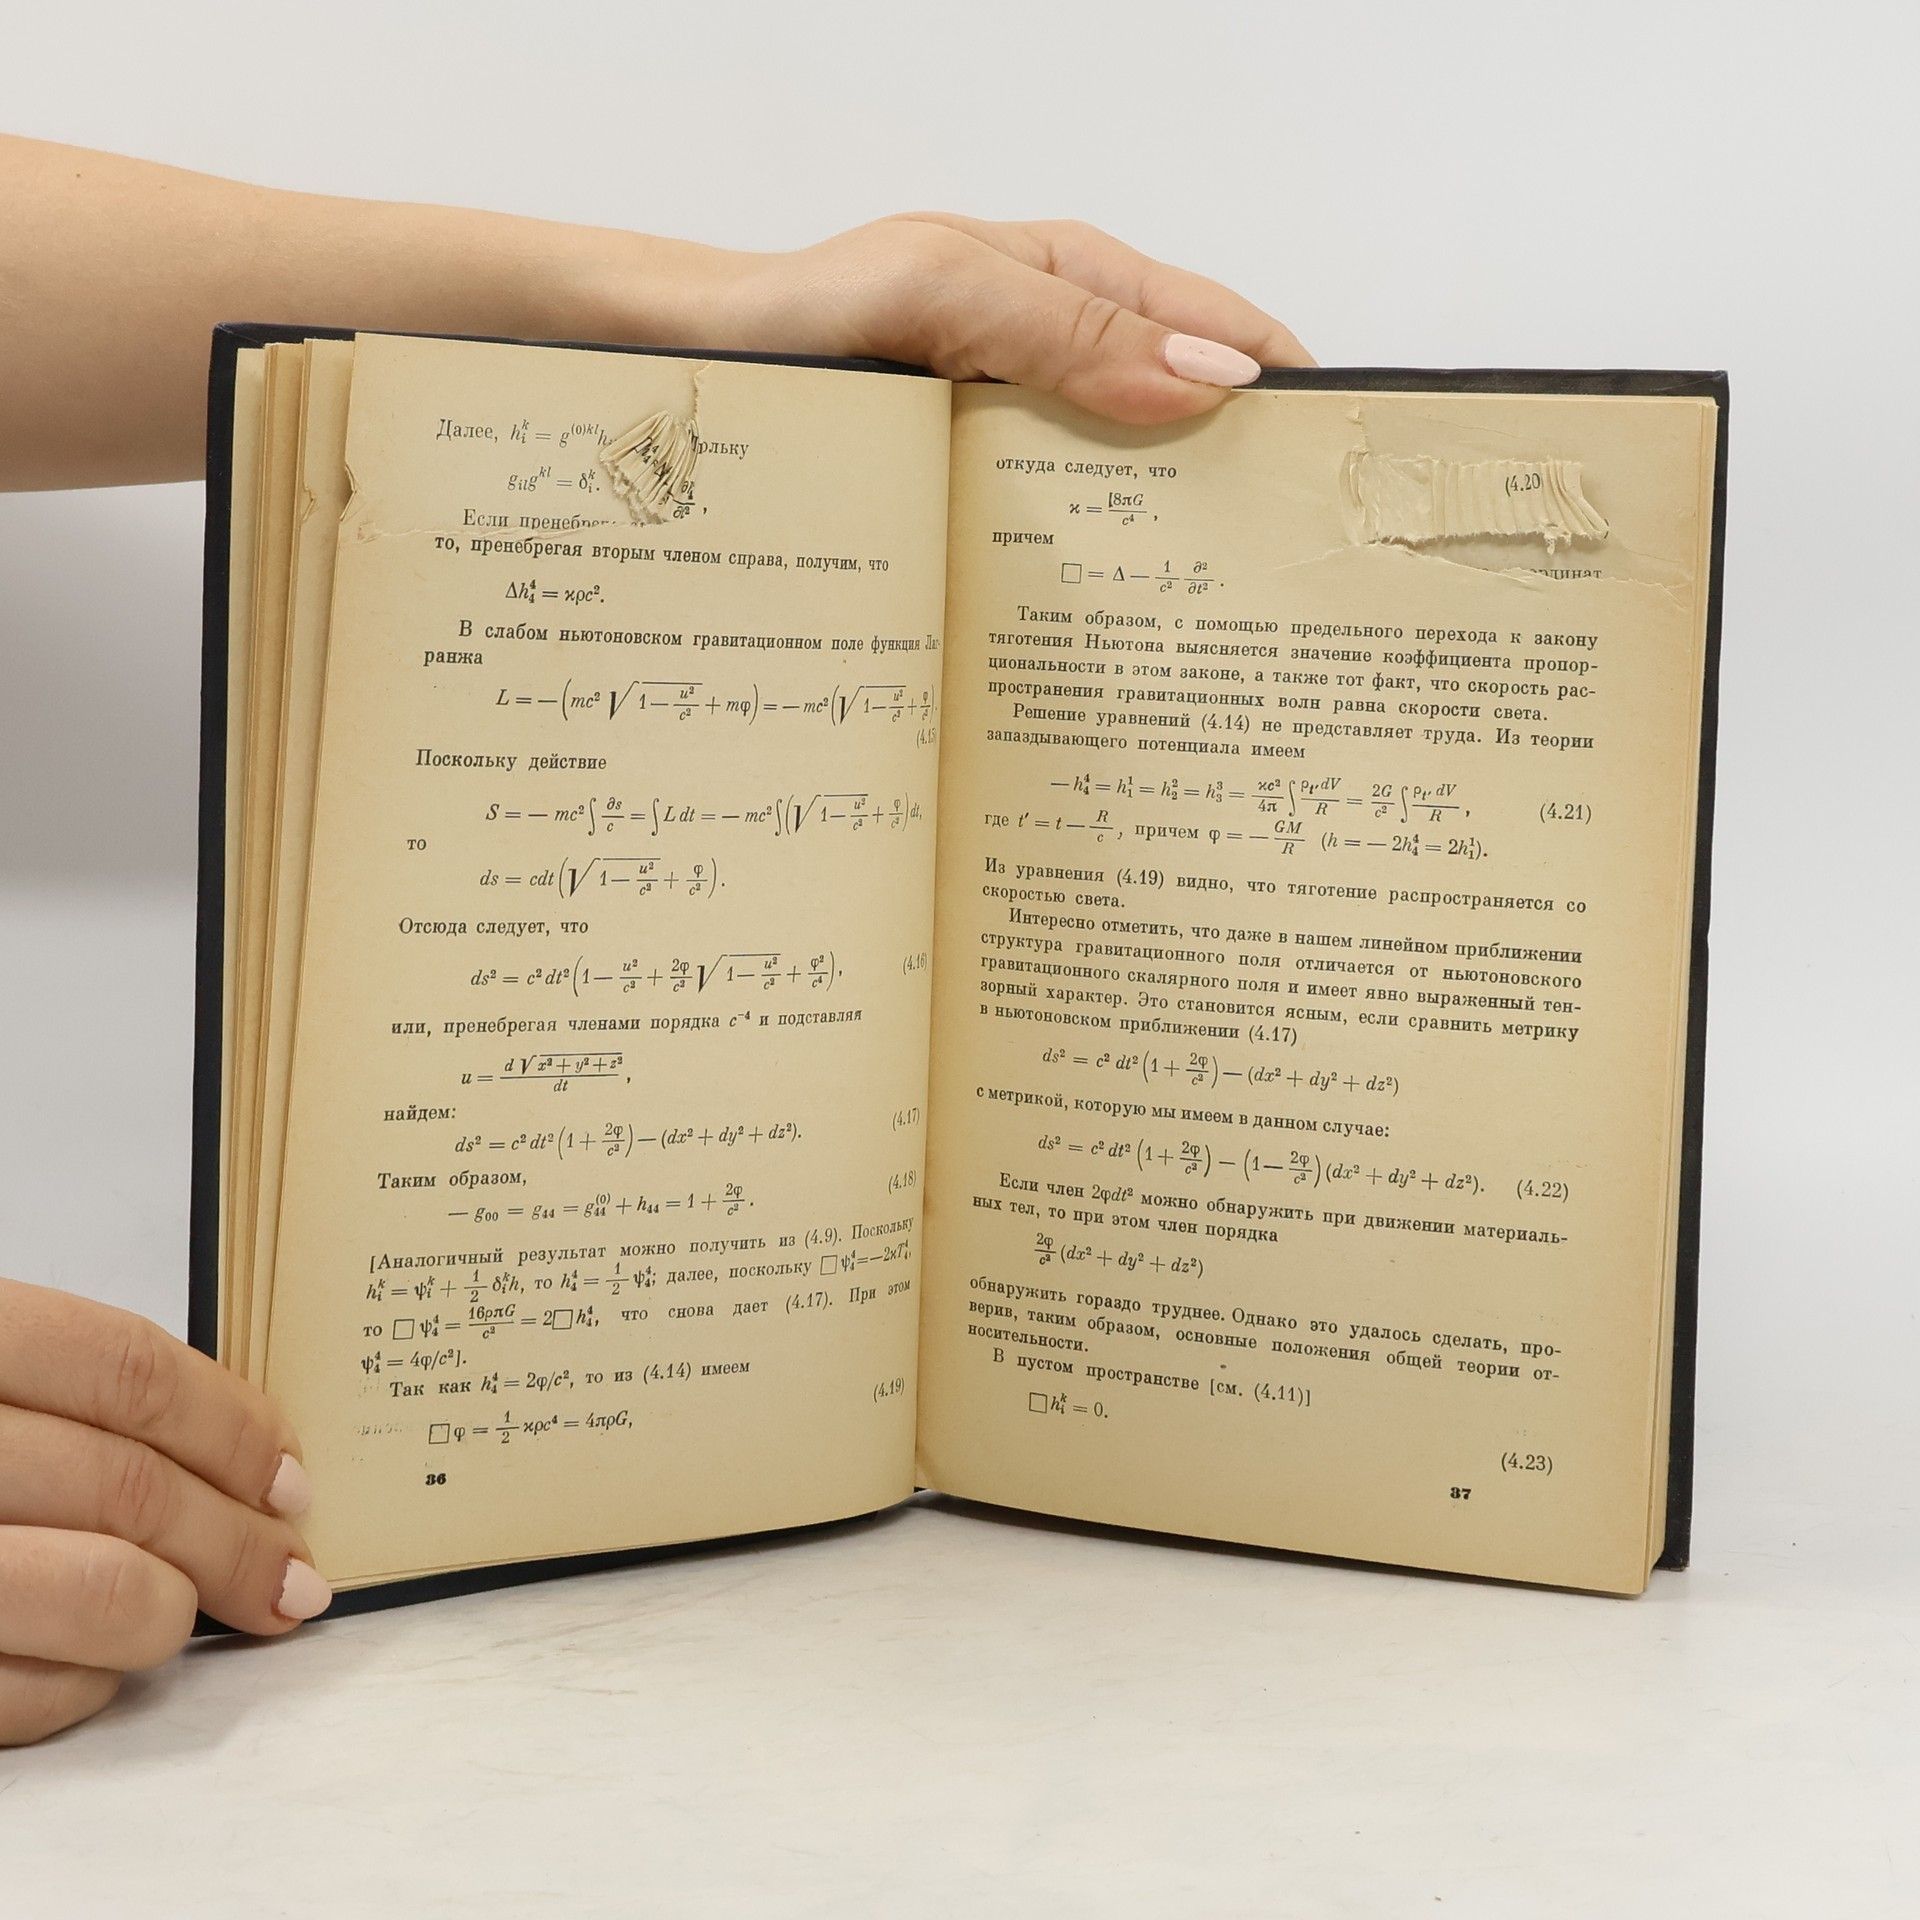 Далее, h_i^k = g^{(0)kl}h
g_{il}g^{kl} = δ_i^k.
Если
то, пренебрегая вторым членом справа, получим, что
Δh_4^4 = ϰρc².
В слабом ньютоновском гравитационном поле функция Лаг-
ранжа
L = — (mc² √(1 — u²/c²) + mφ) = — mc² (√(1 — u²/c²) + φ/c²).
(4.15)
Поскольку действие
S = — mc² ∫ ∂s/c = ∫ L dt = — mc² ∫ (√(1 — u²/c²) + φ/c²) dt,
то
ds = cdt (√(1 — u²/c²) + φ/c²).
Отсюда следует, что
ds² = c² dt² (1 — u²/c² + 2φ/c² √(1 — u²/c²) + φ²/c⁴), (4.16)
или, пренебрегая членами порядка c⁻⁴ и подставляя
u = d √(x² + y² + z²)/dt,
найдем:
ds² = c² dt² (1 + 2φ/c²) — (dx² + dy² + dz²). (4.17)
Таким образом,
— g₀₀ = g₄₄ = g₄₄^{(0)} + h₄₄ = 1 + 2φ/c². (4.18)
[Аналогичный результат можно получить из (4.9). Поскольку
h_i^k = ψ_i^k + 1/2 δ_i^k h, то h_4^4 = 1/2 ψ_4^4; далее, поскольку □ψ_4^4 = —2ϰT_4^4,
то □ψ_4^4 = 16ρπG/c² = 2□h_4^4, что снова дает (4.17). При этом
ψ_4^4 = 4φ/c²].
Так как h_4^4 = 2φ/c², то из (4.14) имеем
□φ = 1/2 ϰρc⁴ = 4πρG, (4.19)
36
откуда следует, что
ϰ = [8πG/c⁴, (4.20
причем
□ = Δ — 1/c² ∂²/∂t².
Таким образом, с помощью предельного перехода к закону
тяготения Ньютона выясняется значение коэффициента пропор-
циональности в этом законе, а также тот факт, что скорость рас-
пространения гравитационных волн равна скорости света.
Решение уравнений (4.14) не представляет труда. Из теории
запаздывающего потенциала имеем
— h_4^4 = h_1^1 = h_2^2 = h_3^3 = ϰc²/4π ∫ ρ_{t'} dV/R = 2G/c² ∫ ρ_{t'} dV/R, (4.21)
где t' = t — R/c, причем φ = — GM/R (h = — 2h_4^4 = 2h_1^1).
Из уравнения (4.19) видно, что тяготение распространяется со
скоростью света.
Интересно отметить, что даже в нашем линейном приближении
структура гравитационного поля отличается от ньютоновского
гравитационного скалярного поля и имеет явно выраженный тен-
зорный характер. Это становится ясным, если сравнить метрику
в ньютоновском приближении (4.17)
ds² = c² dt² (1 + 2φ/c²) — (dx² + dy² + dz²)
с метрикой, которую мы имеем в данном случае:
ds² = c² dt² (1 + 2φ/c²) — (1 — 2φ/c²) (dx² + dy² + dz²). (4.22)
Если член 2φdt² можно обнаружить при движении материаль-
ных тел, то при этом член порядка
2φ/c² (dx² + dy² + dz²)
обнаружить гораздо труднее. Однако это удалось сделать, про-
верив, таким образом, основные положения общей теории от-
носительности.
В пустом пространстве [см. (4.11)]
□h_i^k = 0.
(4.23)
37